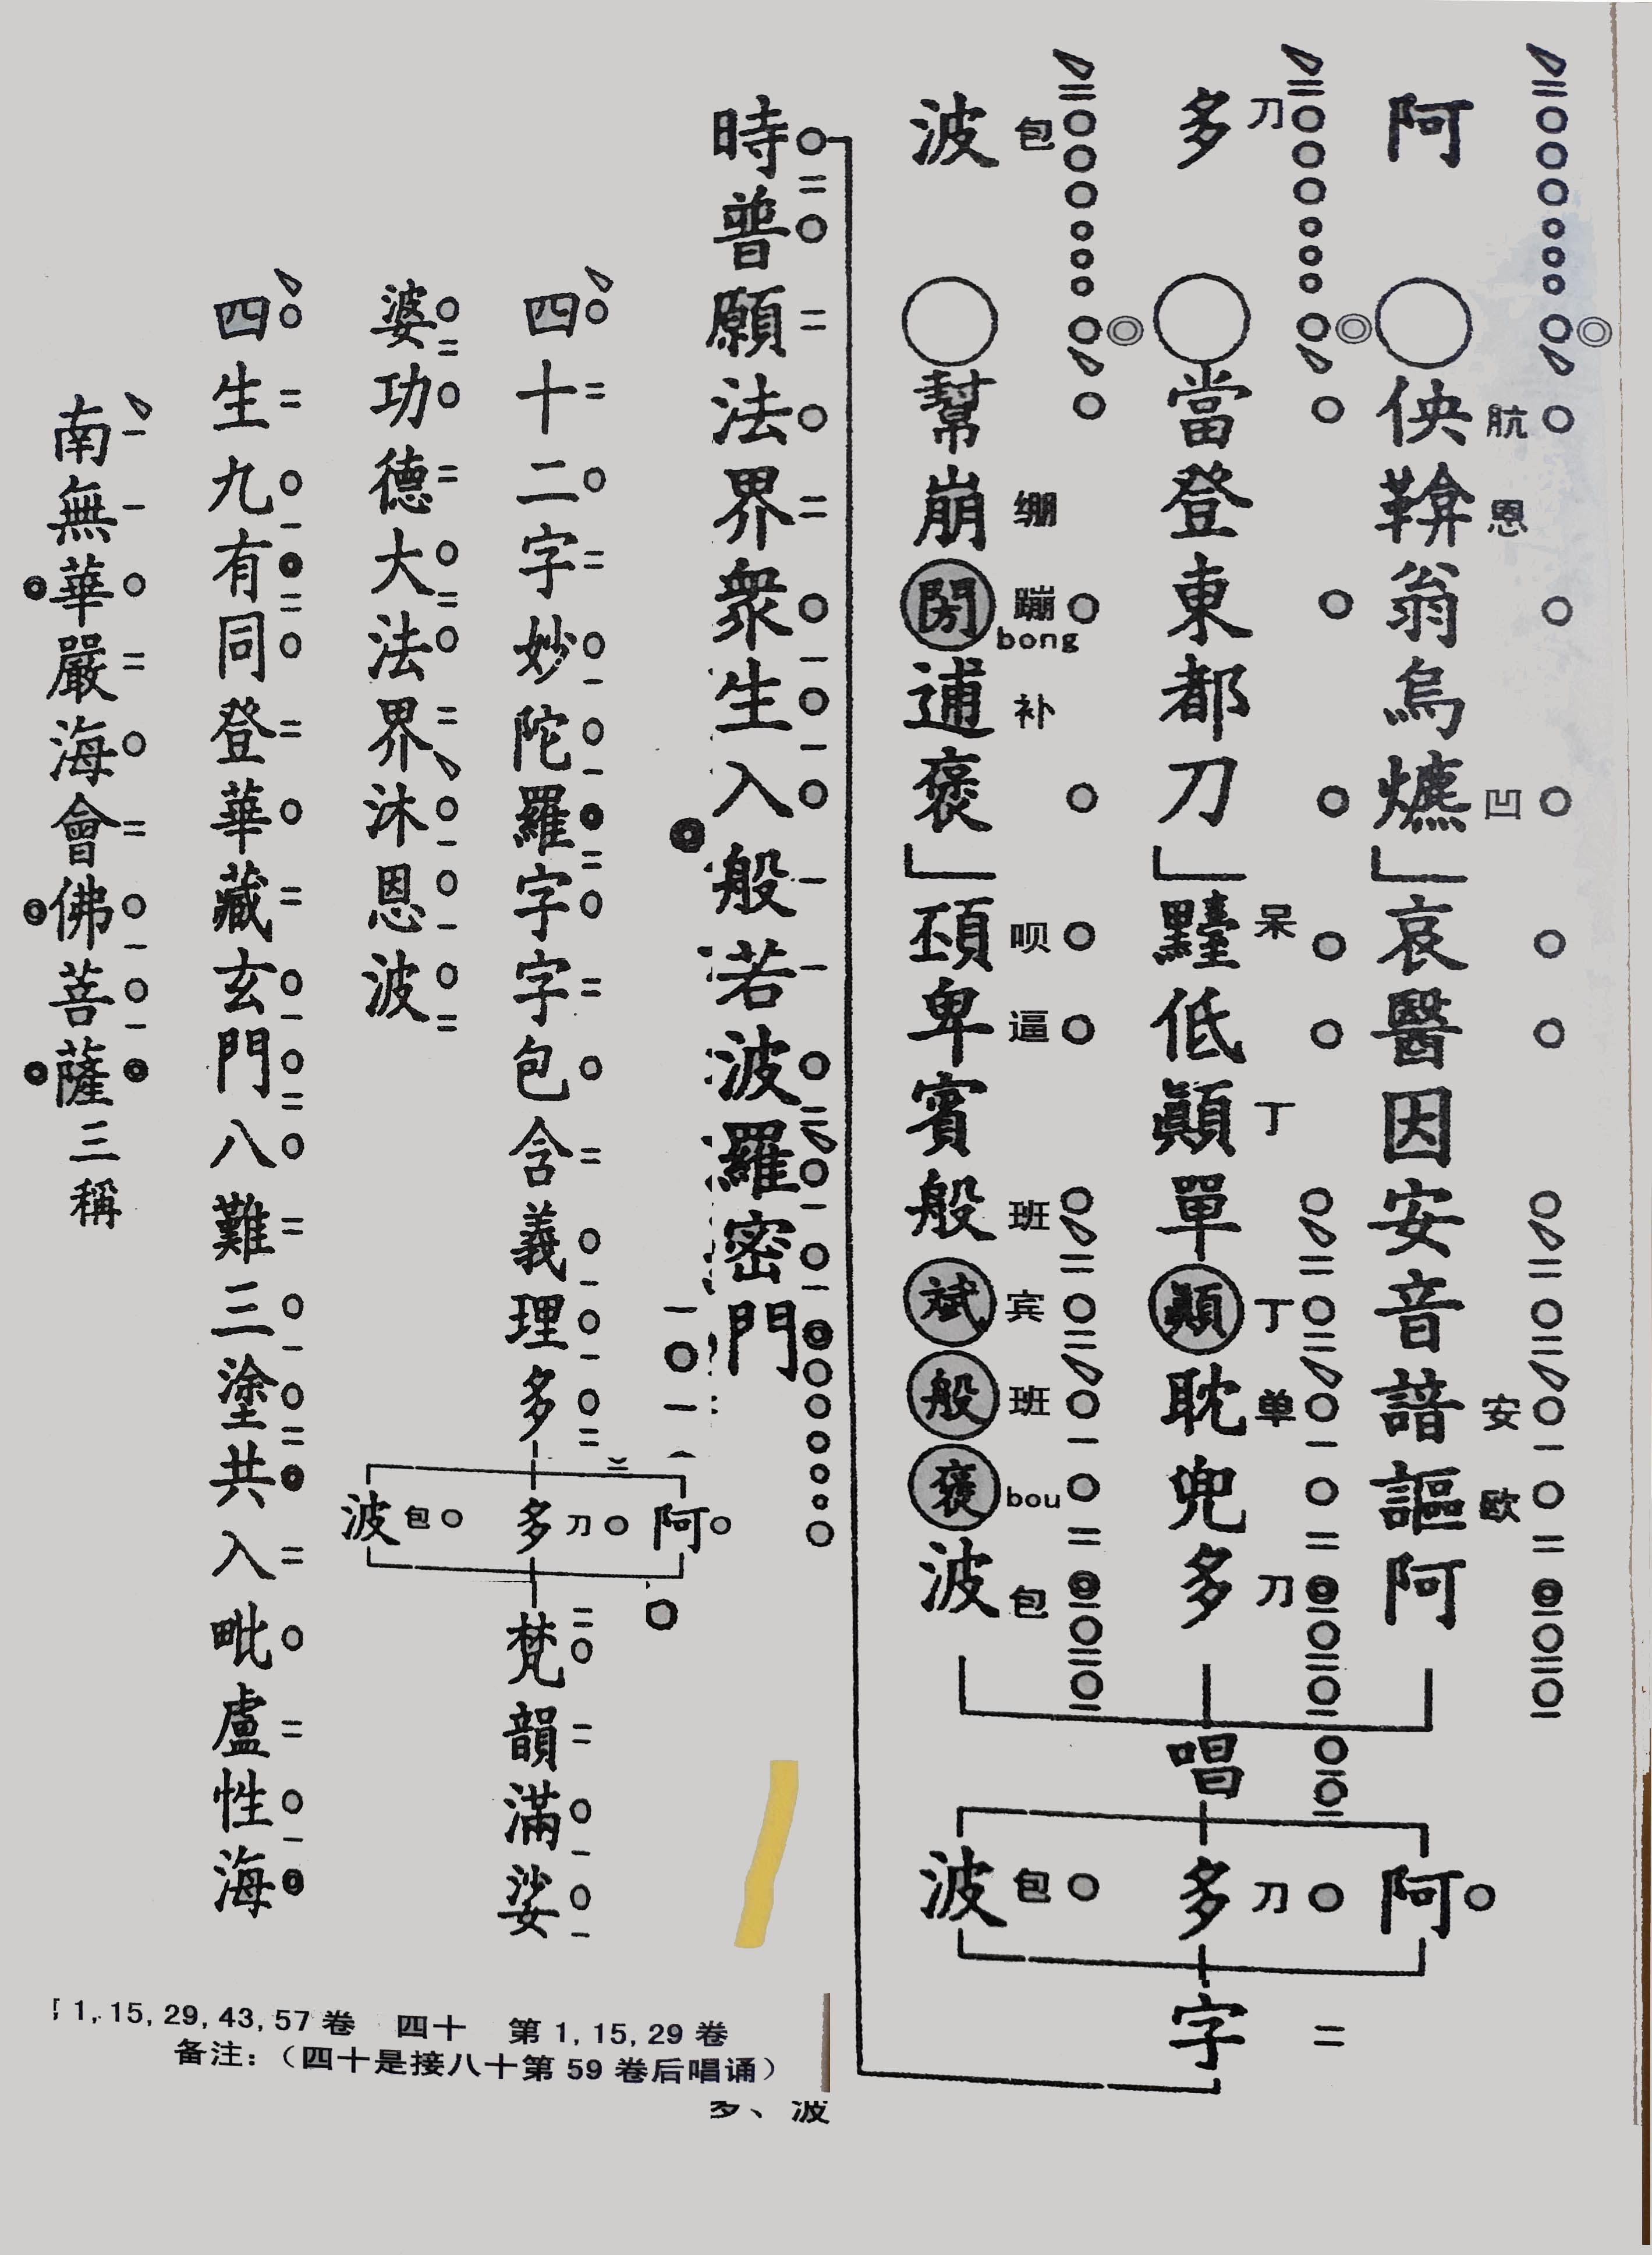 阿 佒 鞥 翁 烏 爊 哀 醫 因 安 音 諳 謳 阿
肮 恩 凹 安 欧
多 當 登 東 都 刀 低 顚 單 顚 耽 兜 多
刀 呆 丁 丁 单 刀
波 幫 崩 逋 褒 卑 賓 般 斌 般 褒 波
包 绷 蹦 bong 补 呗 逼 班 宾 班 bou 包
唱
阿
多 刀
波 包
字
時普願法界衆生入般若波羅密門
四十二字妙陀羅字字包含義理多
阿
多 刀
波 包
梵韻滿娑
婆功德大法界沐恩波
四生九有同登華藏玄門八難三塗共入毗盧性海
南無華嚴海會佛菩薩三稱
1, 15, 29, 43, 57 卷 四十 第 1, 15, 29 卷
备注:（四十是接八十第 59 卷后唱诵）
多、波